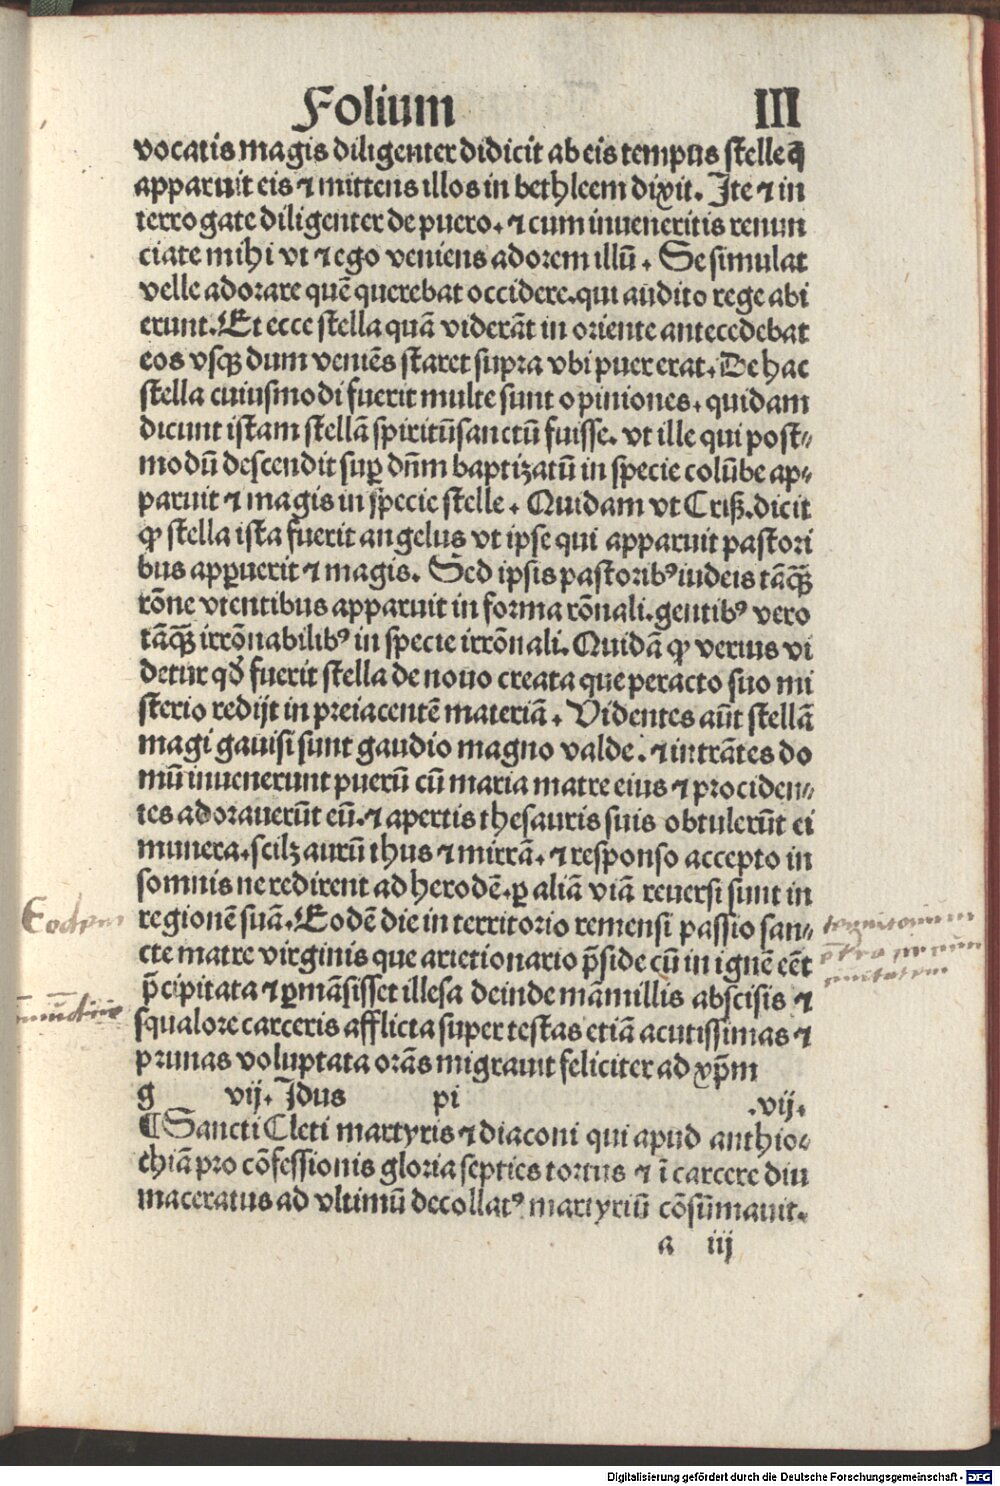 Folium III
vocatis magis diligenter didicit ab eis tempus stelle q̄
apparuit eis ⁊ mittens illos in bethleem dixit. Ite ⁊ in
terrogate diligenter de puero. ⁊ cum inueneritis renun
ciate mihi vt ⁊ ego veniens adorem illū. Se simulat
velle adorare quē querebat occidere. qui audito rege abi
erunt. Et ecce stella quā viderāt in oriente antecedebat
eos vsqꝫ dum veniēs staret supra vbi puer erat. De hac
stella cuiusmodi fuerit multe sunt opiniones. quidam
dicunt istam stellā spiritūsanctū fuisse. vt ille qui post⸗
modū descendit suꝑ dn̄m baptizatū in specie colūbe ap⸗
paruit ⁊ magis in specie stelle. Quidam vt Criß. dicit
ꝙ stella ista fuerit angelus vt ipse qui apparuit pastori
bus apꝑuerit ⁊ magis. Sed ipsis pastoribꝰ iudeis tāqꝫ̄
rōne vtentibus apparuit in forma rōnali. gentibꝰ vero
tāqꝫ̄ irrōnabilibꝰ in specie irrōnali. Quidā ꝙ verius vi
detur qđ fuerit stella de nouo creata que peracto suo mi
sterio redijt in preiacentē materiā. Videntes aūt stellā
magi gauisi sunt gaudio magno valde. ⁊ intrātes do
mū inuenerunt puerū cū maria matre eius ⁊ prociden⸗
tes adorauerūt eū. ⁊ apertis thesauris suis obtulerūt ei
munera. scilꝫ aurū thus ⁊ mirrā. ⁊ responso accepto in
somnis ne redirent ad herodē. ꝑ aliā viā reuersi sunt in
Eodem
regionē suā. Eodē die in territorio remensi passio san⸗
cte matre virginis que arictionario p̄side cū in ignē eēt
p̄cipitata ⁊ ꝑmāsisset illesa deinde māmillis abscisis ⁊
squalore carceris afflicta super testas etiā acutissimas ⁊
prunas voluptata orās migrauit feliciter ad xp̄m
g vij. Idus pi .vij.
¶ Sancti Cleti martyris ⁊ diaconi qui apud anthio⸗
chiā pro cōfessionis gloria septies tortus ⁊ ī carcere diu
maceratus ad vltimū decollatꝰ martyriū cōsūmauit.
a iij
Digitalisierung gefördert durch die Deutsche Forschungsgemeinschaft - DFG